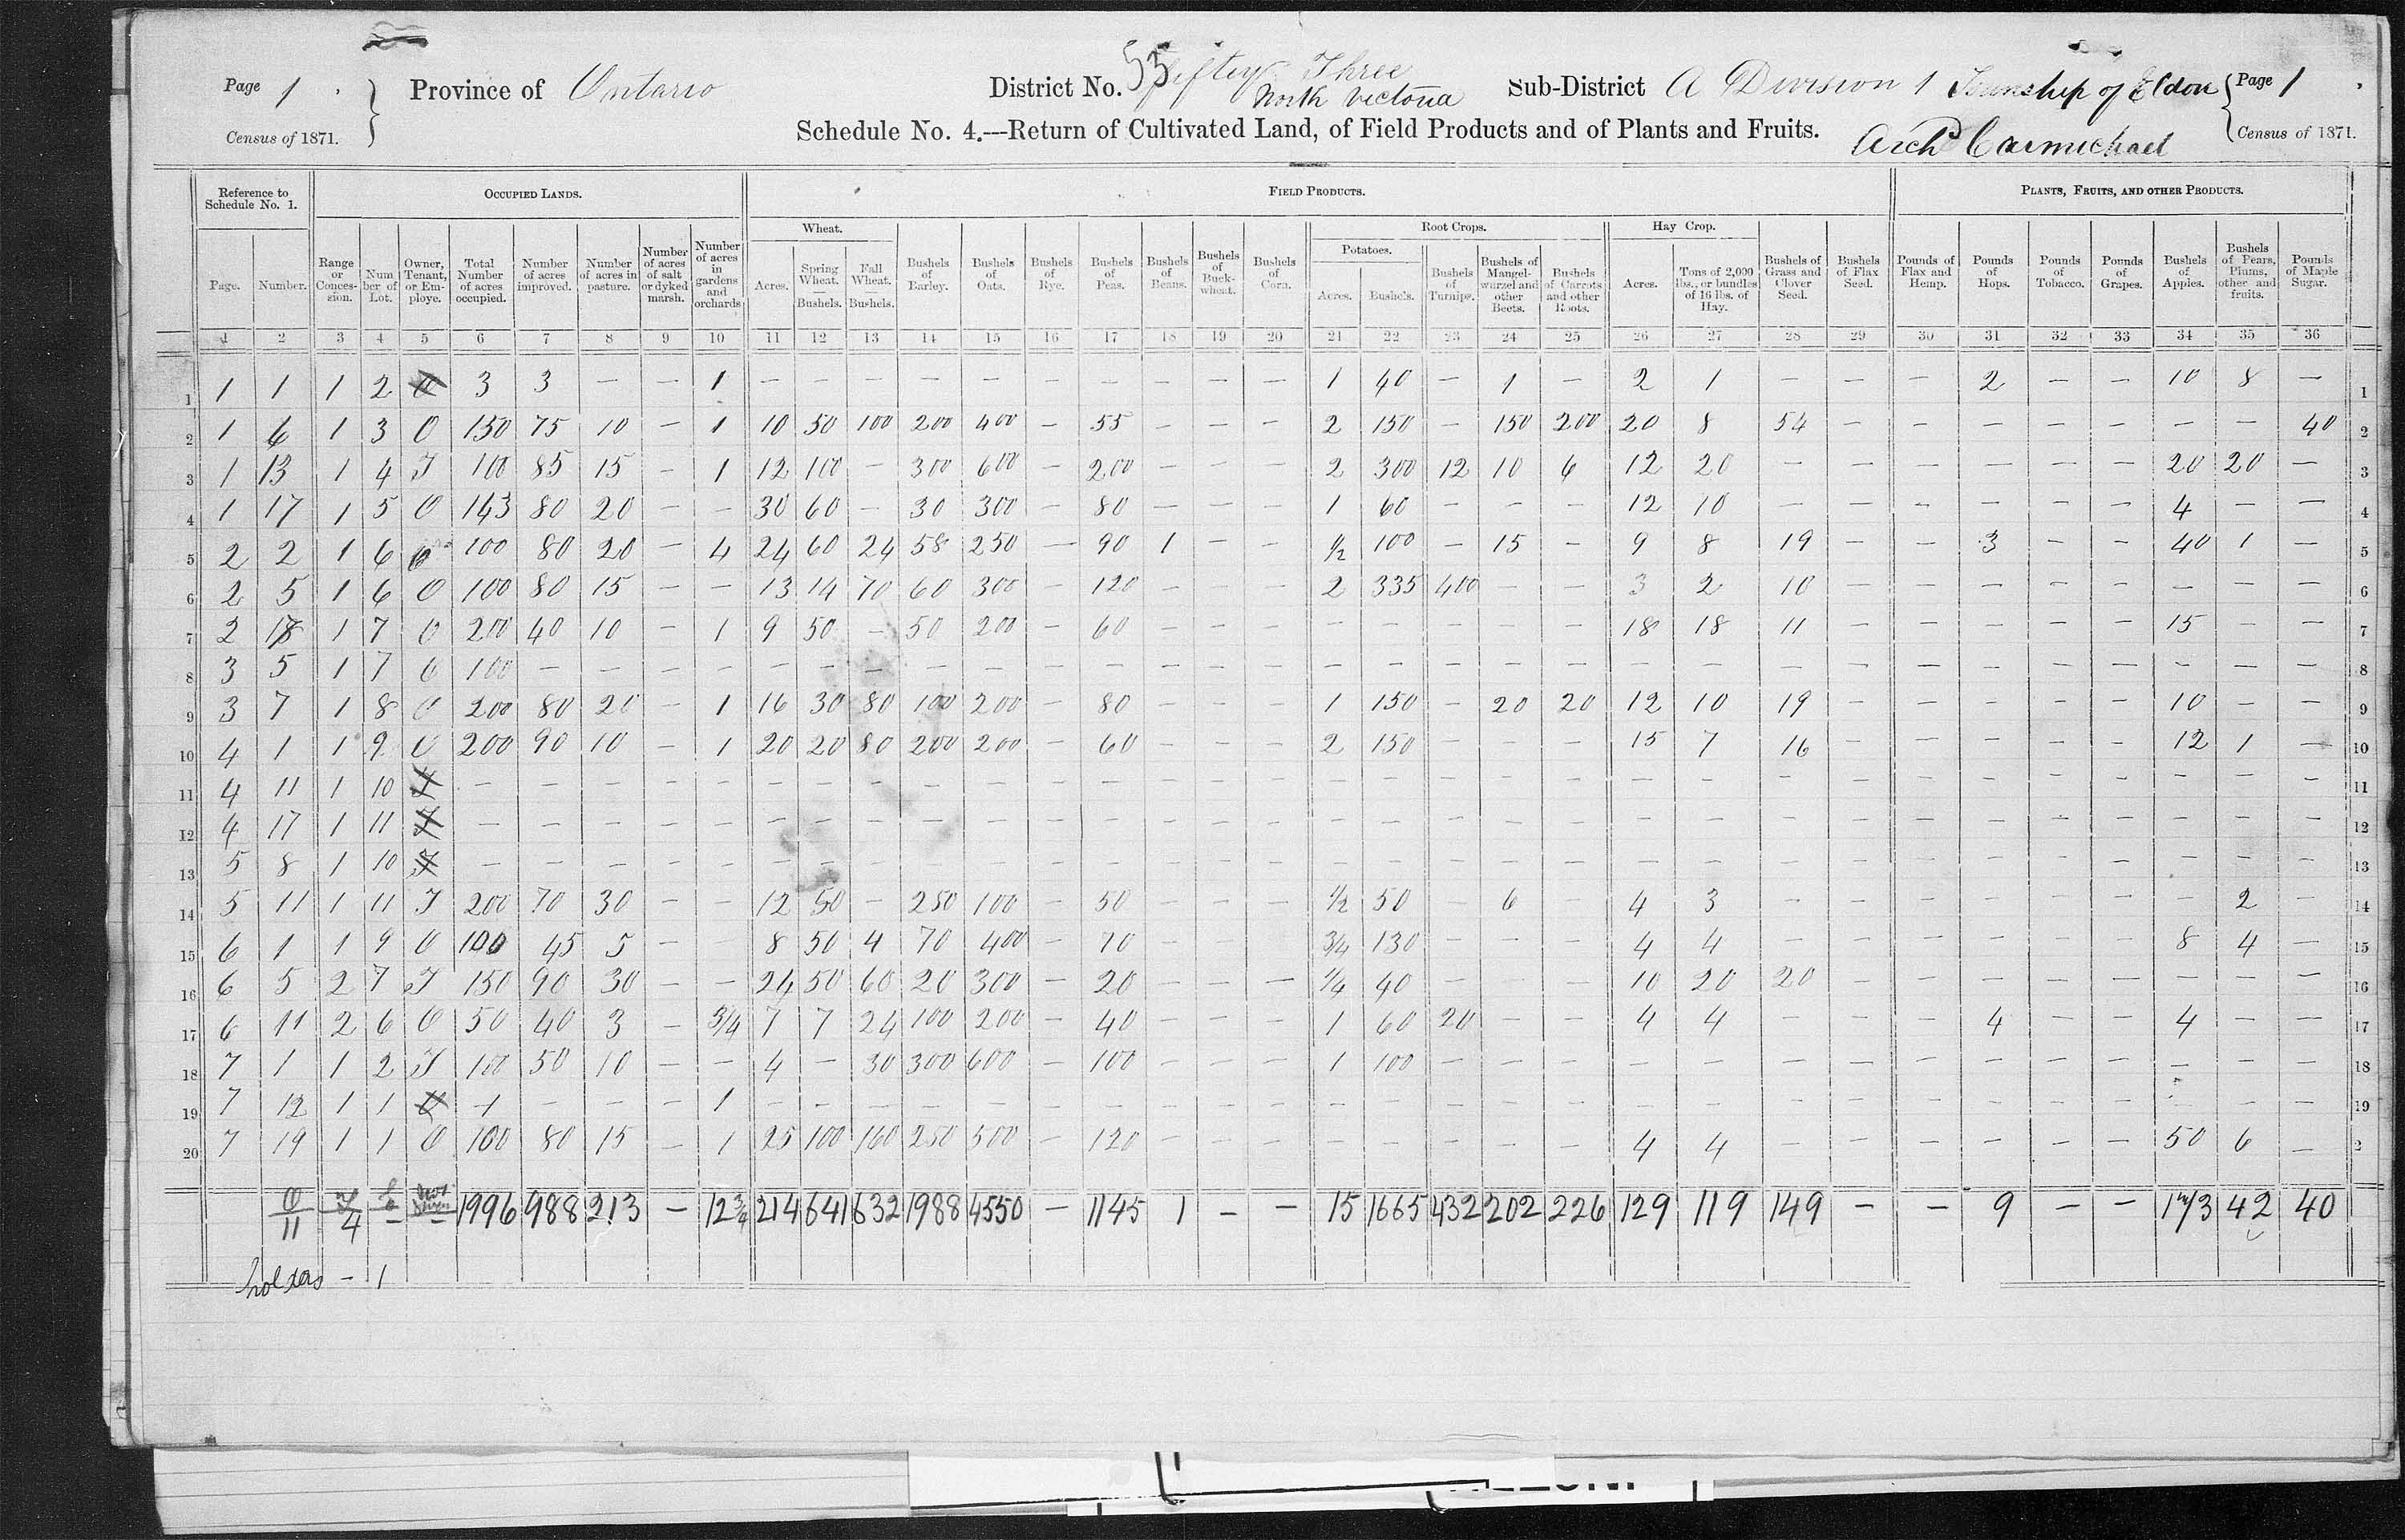 Page 1 Province of Ontario District No. 55 Fiftey Three North Victoria Sub-District A Division 1 Township of Eldon Page 1
Census of 1871. Schedule No. 4.—Return of Cultivated Land, of Field Products and of Plants and Fruits. Archd Carmichael Census of 1871.
Reference to Schedule No. 1. OCCUPIED LANDS. FIELD PRODUCTS. PLANTS, FRUITS, AND OTHER PRODUCTS.
Wheat. Root Crops. Hay Crop.
Potatoes.
Page. Number. Range or Conces-sion. Num ber of Lot. Owner, Tenant, or Em-ploye. Total Number of acres occupied. Number of acres improved. Number of acres in pasture. Number of acres of salt or dyked marsh. Number of acres in gardens and orchards Acres. Spring Wheat. — Bushels. Fall Wheat. — Bushels. Bushels of Barley. Bushels of Oats. Bushels of Rye. Bushels of Peas. Bushels of Beans. Bushels of Buck-wheat. Bushels of Corn. Acres. Bushels. Bushels of Turnips. Bushels of Mangel-wurzel and other Beets. Bushels of Carrots and other Roots. Acres. Tons of 2,000 lbs., or bundles of 16 lbs. of Hay. Bushels of Grass and Clover Seed. Bushels of Flax Seed. Pounds of Flax and Hemp. Pounds of Hops. Pounds of Tobacco. Pounds of Grapes. Bushels of Apples. Bushels of Pears, Plums, other and fruits. Pounds of Maple Sugar.
1 2 3 4 5 6 7 8 9 10 11 12 13 14 15 16 17 18 19 20 21 22 23 24 25 26 27 28 29 30 31 32 33 34 35 36
1 1 1 1 2 O 3 3 — — 1 — — — — — — — — — — 1 40 — 1 — 2 1 — — — 2 — — 10 8 — 1
2 1 6 1 3 O 150 75 10 — 1 10 50 100 200 400 — 55 — — — 2 150 — 150 200 20 8 54 — — — — — — — 40 2
3 1 13 1 4 T 100 85 15 — 1 12 100 — 300 600 — 200 — — — 2 300 12 10 6 12 20 — — — — — — 20 20 — 3
4 1 17 1 5 O 143 80 20 — — 30 60 — 30 300 — 80 — — — 1 60 — — — 12 10 — — — — — — 4 — — 4
5 2 2 1 6 O 100 80 20 — 4 24 60 24 58 250 — 90 1 — — 1/2 100 — 15 — 9 8 19 — — 3 — — 40 1 — 5
6 2 5 1 6 O 100 80 15 — — 13 14 70 60 300 — 120 — — — 2 335 400 — — 3 2 10 — — — — — — — — 6
7 2 18 1 7 O 200 40 10 — 1 9 50 — 50 200 — 60 — — — — — — — — 18 18 11 — — — — — 15 — — 7
8 3 5 1 7 O 100 — — — — — — — — — — — — — — — — — — — — — — — — — — — — — — 8
9 3 7 1 8 O 200 80 20 — 1 16 30 80 100 200 — 80 — — — 1 150 — 20 20 12 10 19 — — — — — 10 — — 9
10 4 1 1 9 O 200 90 10 — 1 20 20 80 200 200 — 60 — — — 2 150 — — — 15 7 16 — — — — — 12 1 — 10
11 4 11 1 10 T — — — — — — — — — — — — — — — — — — — — — — — — — — — — — — — 11
12 4 17 1 11 T — — — — — — — — — — — — — — — — — — — — — — — — — — — — — — — 12
13 5 8 1 10 T — — — — — — — — — — — — — — — — — — — — — — — — — — — — — — — 13
14 5 11 1 11 T 200 70 30 — — 12 50 — 250 100 — 50 — — — 1/2 50 — 6 — 4 3 — — — — — — — 2 — 14
15 6 1 1 9 O 100 45 5 — — 8 50 4 70 400 — 70 — — — 3/4 130 — — — 4 4 — — — — — — 8 4 — 15
16 6 5 2 7 T 150 90 30 — — 24 50 60 20 300 — 20 — — — 1/4 40 — — — 10 20 20 — — — — — — — — 16
17 6 11 2 6 O 50 40 3 — 3/4 7 7 24 100 200 — 40 — — — 1 60 20 — — 4 4 — — — 4 — — 4 — — 17
18 7 1 1 2 T 100 50 10 — — 4 — 30 300 600 — 100 — — — 1 100 — — — — — — — — — — — — — — 18
19 7 12 1 1 O 1 — — — 1 — — — — — — — — — — — — — — — — — — — — — — — — — — 19
20 7 19 1 1 O 100 80 15 — 1 25 100 160 250 500 — 120 — — — — — — — — 4 4 — — — — — — 50 6 — 2
O/11 T/4 E/— 1996 988 213 — 12 3/4 214 641 632 1988 4550 — 1145 1 — — 15 1665 432 202 226 129 119 149 — — 9 — — 173 42 40
holders — 1